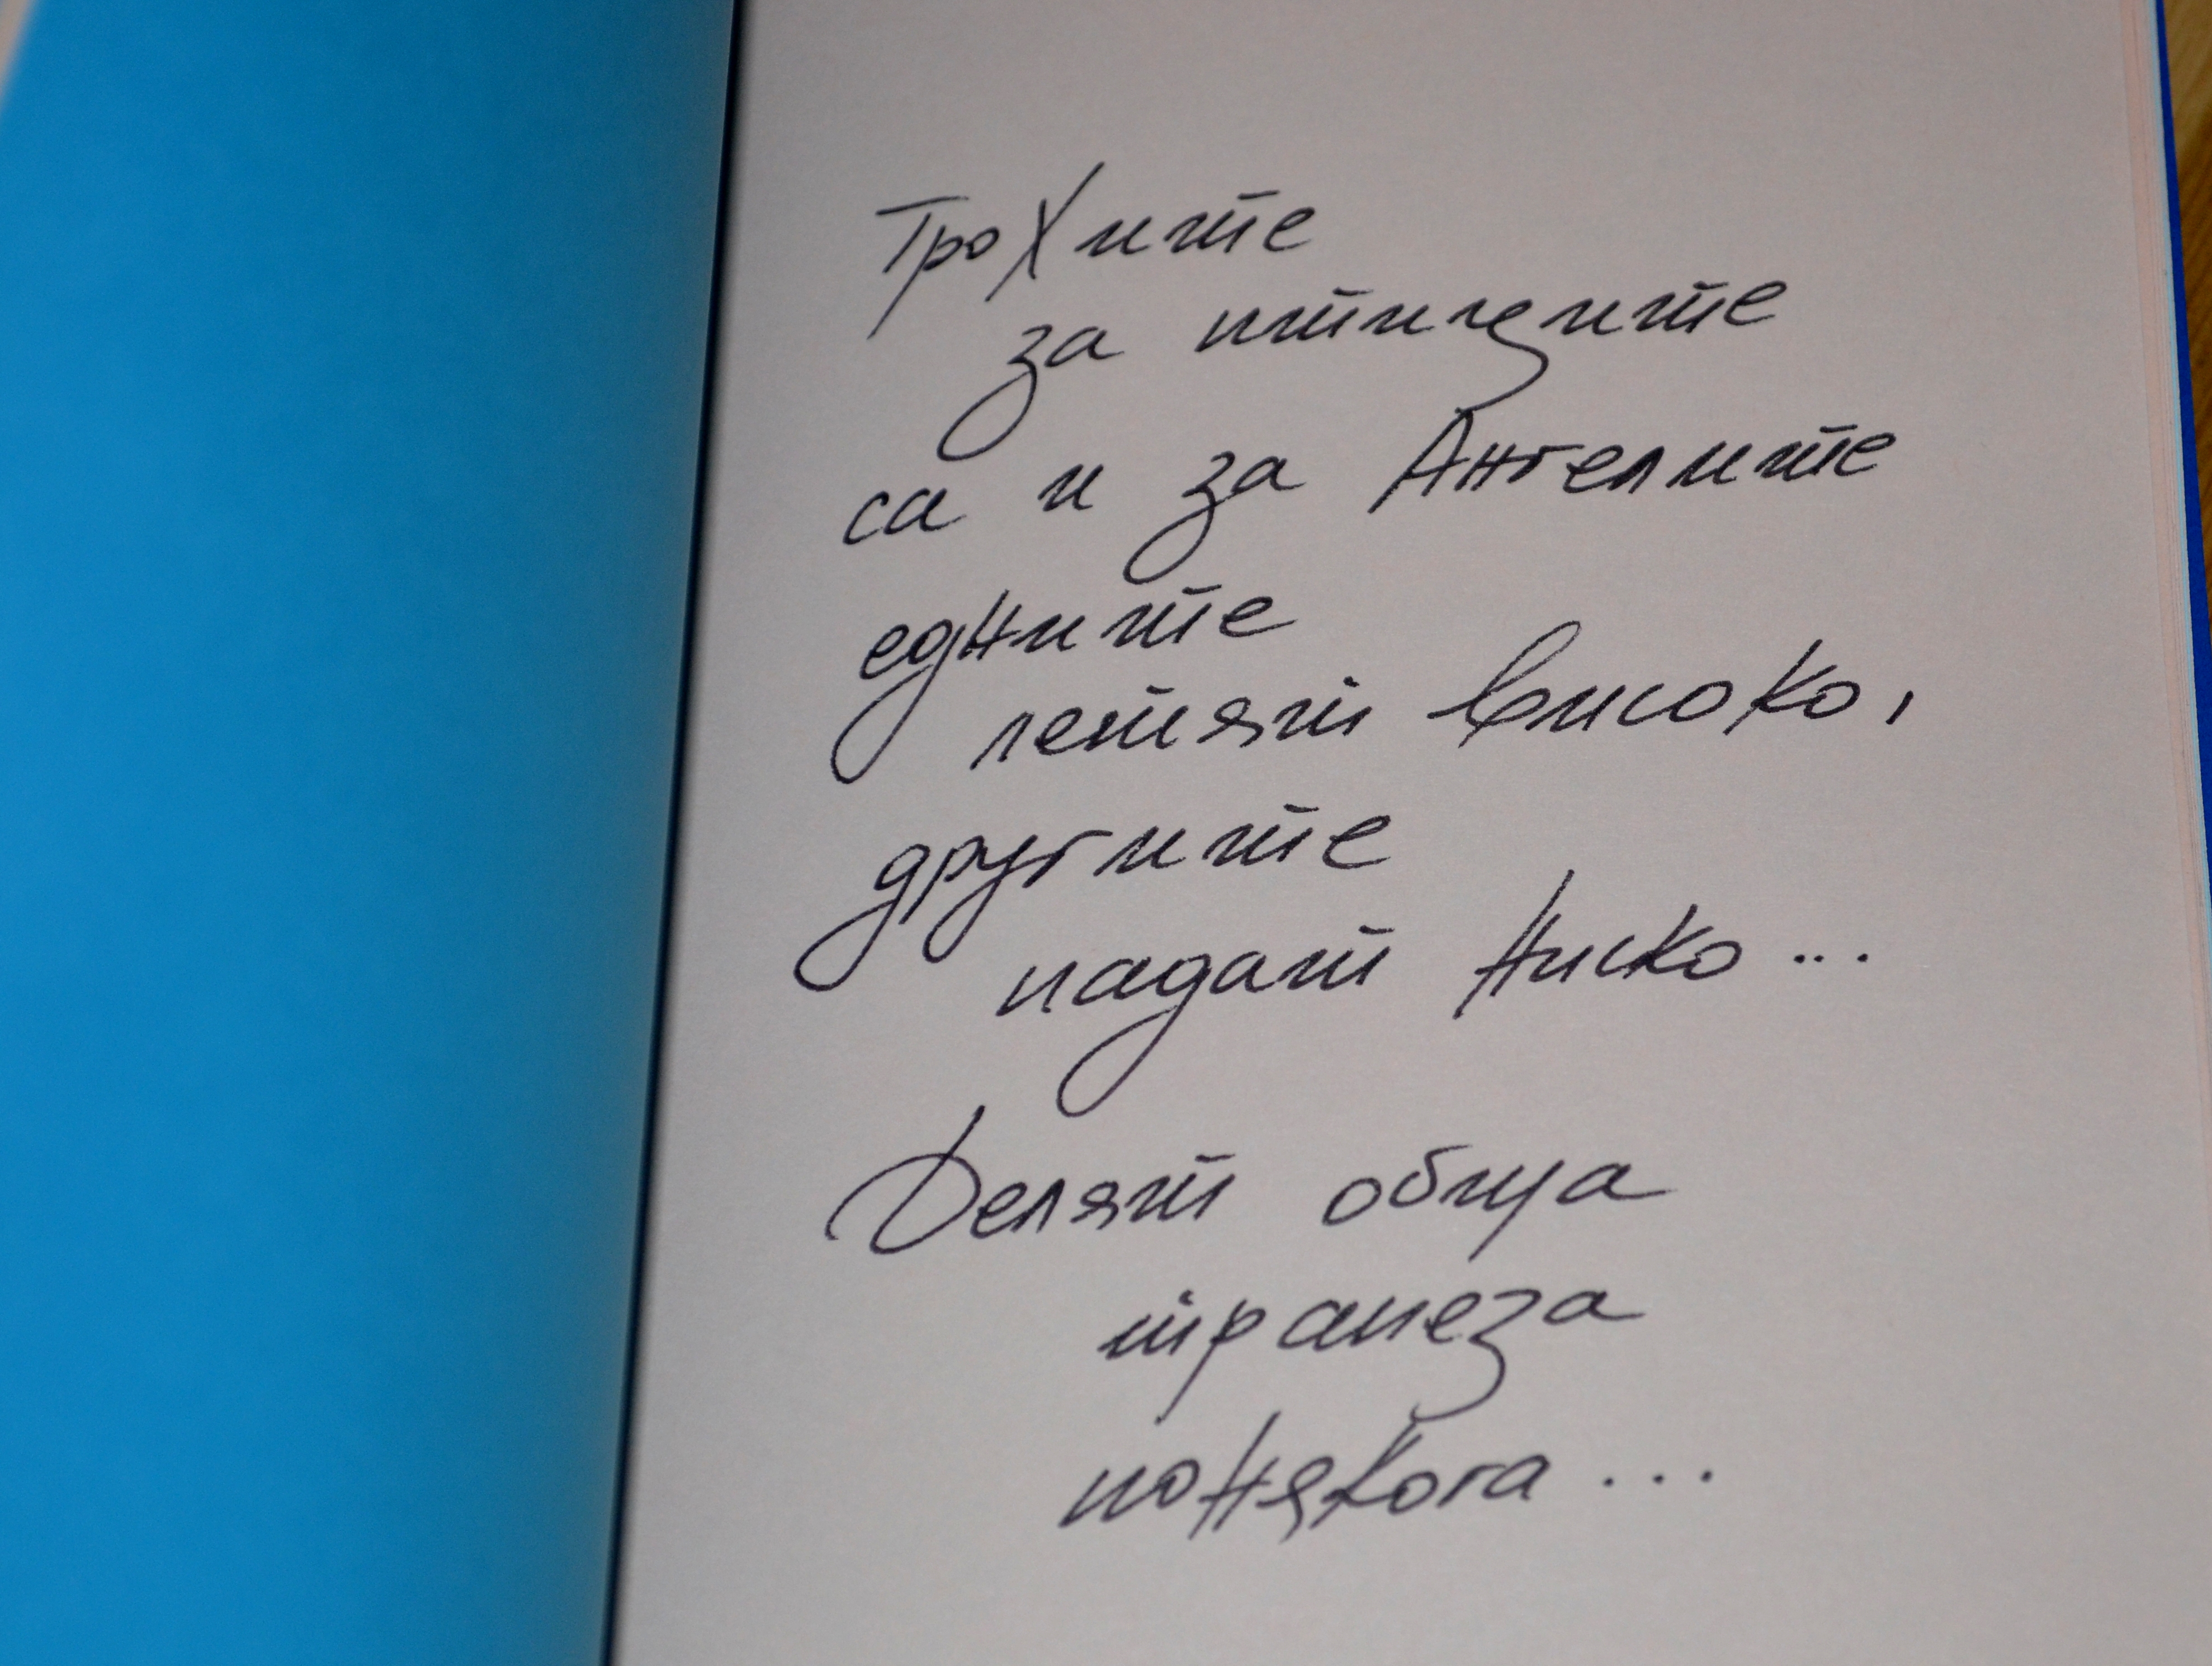 Трохите
за птиците
са и за Ангелите
едните
летят високо,
другите
падат ниско...
Делят обща
трапеза
понякога...